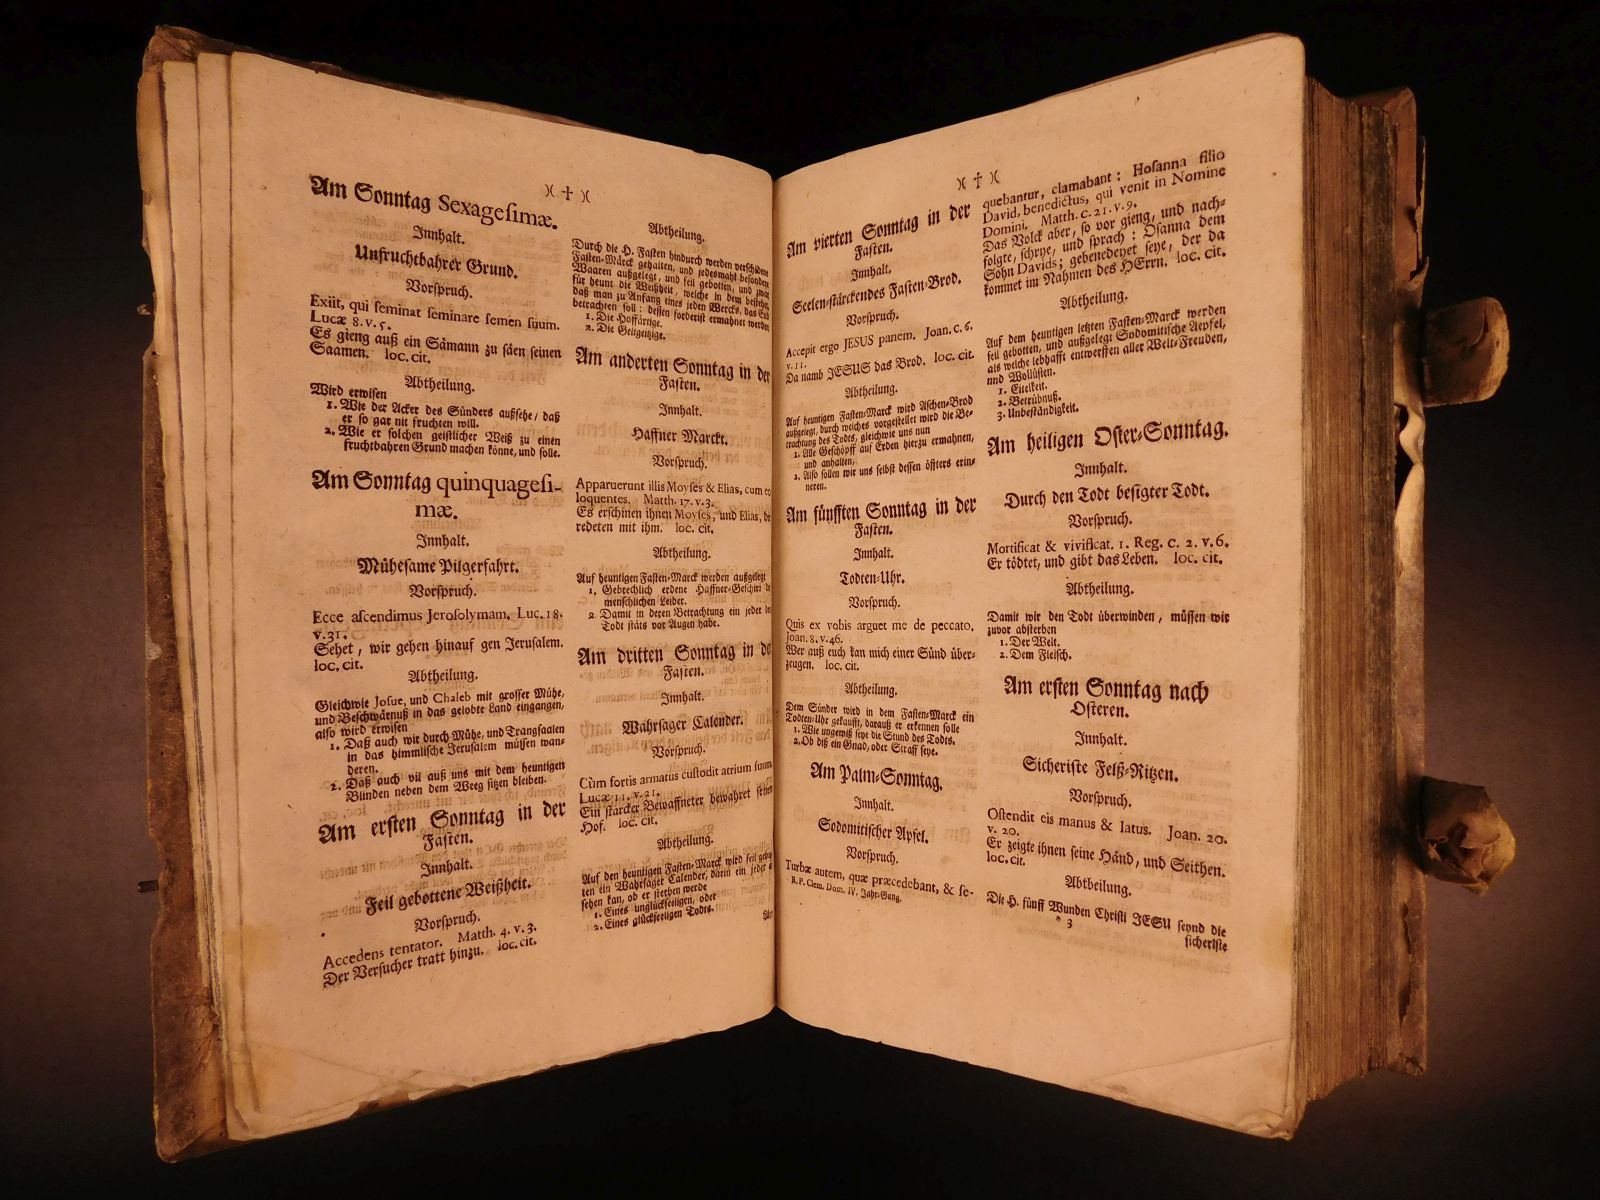 )( ✝ )(
Am Sonntag Sexagesimæ.
Innhalt.
Unfruchtbahrer Grund.
Vorspruch.
Exiit, qui seminat seminare semen suum.
Lucæ 8. v. 5.
Es gieng auß ein Sämann zu säen seinen
Saamen. loc. cit.
Abtheilung.
Wird erwisen
1. Wie der Acker des Sünders außsehe/ daß
er so gar nit fruchten will.
2. Wie er solchen geistlicher Weiß zu einen
fruchtbahren Grund machen könne, und solle.
Am Sonntag quinquagesi-
mæ.
Innhalt.
Mühesame Pilgerfahrt.
Vorspruch.
Ecce ascendimus Jerosolymam. Luc. 18.
v. 31.
Sehet, wir gehen hinauf gen Jerusalem.
loc. cit.
Abtheilung.
Gleichwie Josue, und Chaleb mit grosser Mühe,
und Beschwärnuß in das gelobte Land eingangen,
also wird erwisen
1. Daß auch wir durch Mühe, und Trangsaalen
in das himmlische Jerusalem müssen wan-
deren.
2. Daß auch vil auß uns mit dem heuntigen
Blinden neben dem Weeg sitzen bleiben.
Am ersten Sonntag in der
Fasten.
Innhalt.
Feil gebottene Weißheit.
Vorspruch.
Accedens tentator. Matth. 4. v. 3.
Der Versucher tratt hinzu. loc. cit.
Abtheilung.
Durch die H. Fasten hindurch werden verschidene
Fasten-Märck gehalten, und jedesmahl besondere
Waaren außgelegt, und feil gebotten, und zwar
für heunt die Weißheit, welche in dem bestehet,
daß man zu Anfang eines jeden Wercks, das End
betrachten soll: dessen forderist ermahnet werden
1. Die Hoffärtige.
2. Die Geitgeitzige.
Am anderten Sonntag in der
Fasten.
Innhalt.
Haffner Marckt.
Vorspruch.
Apparuerunt illis Moyses & Elias, cum eo
loquentes. Matth. 17. v. 3.
Es erschinen ihnen Moyses, und Elias, die
redeten mit ihm. loc. cit.
Abtheilung.
Auf heuntigen Fasten-Marck werden außgelegt
1. Gebrechlich erdene Haffner-Geschirr
menschlichen Leiber.
2. Damit in deren Betrachtung ein jeder den
Todt stäts vor Augen habe.
Am dritten Sonntag in der
Fasten.
Innhalt.
Wahrsager Calender.
Vorspruch.
Cùm fortis armatus custodit atrium suum.
Lucæ 11. v. 21.
Ein starcker Bewaffneter bewahret seinen
Hof. loc. cit.
Abtheilung.
Auf den heuntigen Fasten-Marck wird feil gebot-
ten ein Wahrsager Calender, darin ein jeder
sehen kan, ob er sterben werde
1. Eines unglückseeligen, oder
2. Eines glückseeligen Todts.
Am
)( ✝ )(
Am vierten Sonntag in der
Fasten.
Innhalt.
Seelen-stärckendes Fasten-Brod.
Vorspruch.
Accepit ergo JESUS panem. Joan. c. 6.
v. 11.
Da namb JESUS das Brod. loc. cit.
Abtheilung.
Auf heuntigen Fasten-Marck wird Aschen-Brod
außgelegt, durch welches vorgestellet wird die Be-
trachtung des Todts, gleichwie uns nun
1. Alle Geschöpff auf Erden hierzu ermahnen,
und anhalten,
2. Also sollen wir uns selbst dessen öffters erin-
neren.
Am fünfften Sonntag in der
Fasten.
Innhalt.
Todten-Uhr.
Vorspruch.
Quis ex vobis arguet me de peccato.
Joan. 8. v. 46.
Wer auß euch kan mich einer Sünd über-
zeugen. loc. cit.
Abtheilung.
Dem Sünder wird in dem Fasten-Marck ein
Todten-Uhr gekaufft, darauß er erkennen solle
1. Wie ungewiß seye die Stund des Todts.
2. Ob diß ein Gnad, oder Straff seye.
Am Palm-Sonntag.
Innhalt.
Sodomitischer Apfel.
Vorspruch.
Turbæ autem, quæ præcedebant, & se-
R. P. Clem. Dom. IV. Jahr-Gang.
quebantur, clamabant: Hosanna filio
David, benedictus, qui venit in Nomine
Domini. Matth. c. 21. v. 9.
Das Volck aber, so vor gieng, und nach-
folgte, schrye, und sprach: Osanna dem
Sohn Davids; gebenedeyet seye, der da
kommet im Nahmen des HErrn. loc. cit.
Abtheilung.
Auf dem heuntigen letzten Fasten-Marck werden
feil gebotten, und außgelegt Sodomitische Aepfel,
als welche lebhafft entwerffen aller Welt-Freuden,
und Wollüsten.
1. Eitelkeit.
2. Betrübnuß.
3. Unbeständigkeit.
Am heiligen Oster-Sonntag.
Innhalt.
Durch den Todt besigter Todt.
Vorspruch.
Mortificat & vivificat. 1. Reg. c. 2. v. 6.
Er tödtet, und gibt das Leben. loc. cit.
Abtheilung.
Damit wir den Todt überwinden, müssen wir
zuvor absterben
1. Der Welt.
2. Dem Fleisch.
Am ersten Sonntag nach
Osteren.
Innhalt.
Sicheriste Felß-Ritzen.
Vorspruch.
Ostendit eis manus & latus. Joan. 20.
v. 20.
Er zeigte ihnen seine Händ, und Seithen.
loc. cit.
Abtheilung.
Die H. fünff Wunden Christi JESU seynd die
* 3
sicheriste